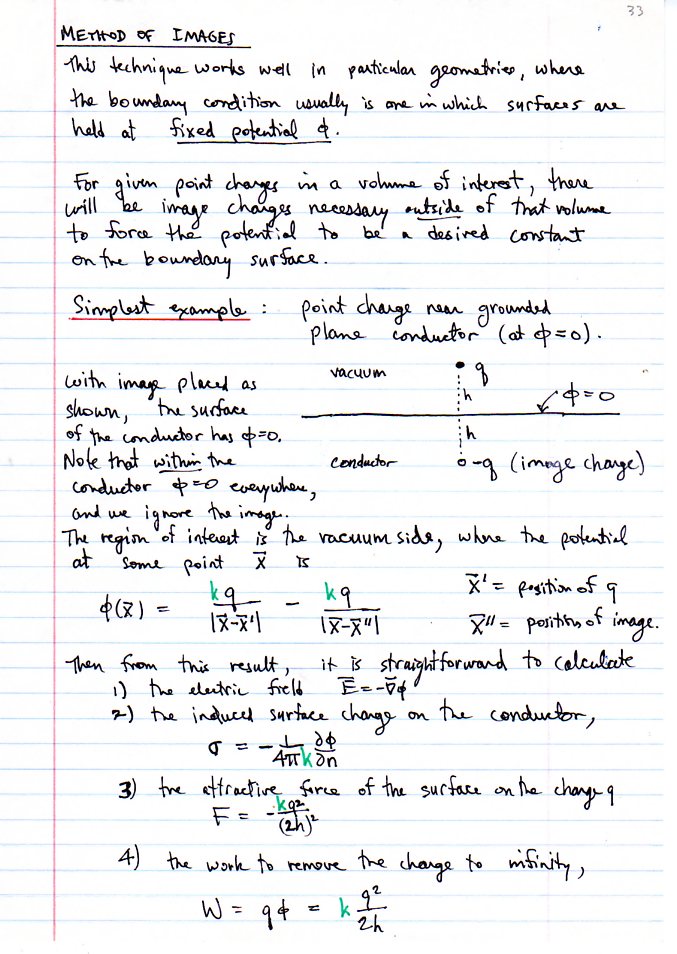 33
METHOD OF IMAGES
This technique works well in particular geometries, where
the boundary condition usually is one in which surfaces are
held at fixed potential ϕ.
For given point charges in a volume of interest, there
will be image charges necessary outside of that volume
to force the potential to be a desired constant
on the boundary surface.
Simplest example : point charge near grounded
plane conductor (at ϕ=0).
with image placed as
shown, the surface
of the conductor has ϕ=0.
Note that within the
conductor ϕ=0 everywhere,
and we ignore the image.
vacuum
q
h
ϕ=0
h
conductor
-q (image charge)
The region of interest is the vacuum side, where the potential
at some point x⃗ is
ϕ(x⃗) = kq/|x⃗-x⃗'| - kq/|x⃗-x⃗''|
x⃗' = position of q
x⃗'' = position of image.
Then from this result, it is straightforward to calculate
1) the electric field E⃗ = -∇⃗ϕ
2) the induced surface charge on the conductor,
σ = - 1/4πk ∂ϕ/∂n
3) the attractive force of the surface on the charge q
F = - kq²/(2h)²
4) the work to remove the charge to infinity,
W = qϕ = k q²/2h